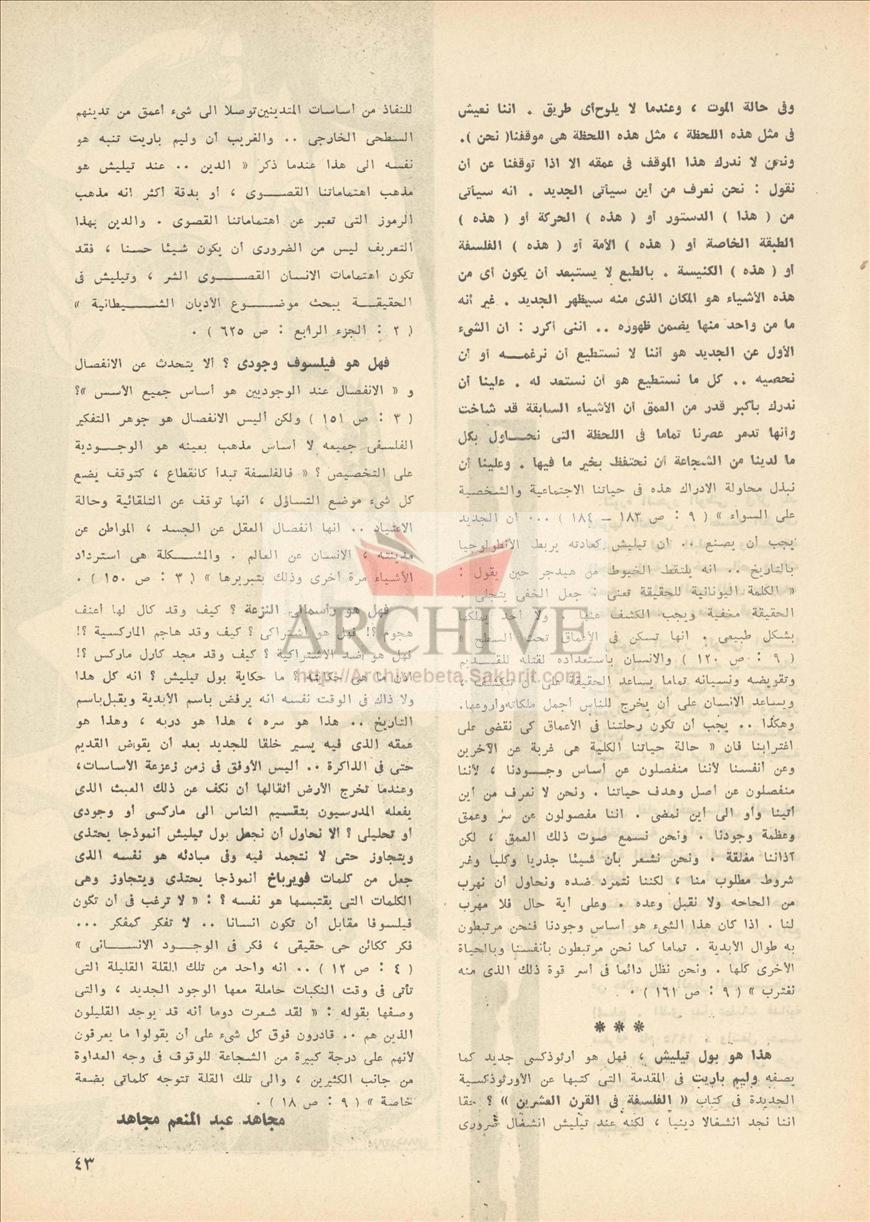 وفى حالة الموت ، وعندما لا يلوح أى طريق . اننا نعيش
فى مثل هذه اللحظة ، مثل هذه اللحظة هى موقفنا ( نحن ) .
ونحن لا ندرك هذا الموقف فى عمقه الا اذا توقفنا عن أن
نقول : نحن نعرف من أين سيأتى الجديد . انه سيأتى
من ( هذا ) الدستور أو ( هذه ) الحركة أو ( هذه )
الطبقة الخاصة أو ( هذه ) الأمة أو ( هذه ) الفلسفة
أو ( هذه ) الكنيسة . بالطبع لا يستبعد أن يكون أى من
هذه الأشياء هو المكان الذى منه سيظهر الجديد . غير أنه
ما من واحد منها يضمن ظهوره .. اننى أكرر : ان الشىء
الأول عن الجديد هو أننا لا نستطيع أن نرغمـــه أو أن
نحصيه .. كل ما نستطيع هو أن نستعد له . علينا أن
ندرك بأكبر قدر من العمق أن الأشياء السابقة قد شاخت
وأنها تدمر عصرنا تماما فى اللحظة التى نحـــاول بكل
ما لدينا من الشجاعة أن نحتفظ بخير ما فيها . وعلينا أن
نبذل محاولة الادراك هذه فى حياتنا الاجتماعية والشخصية
على السواء » ( ٩ : ص ١٨٣ ــ ١٨٤ ) ... ان الجديد
يجب أن يصنع .. ان تيليش كعادته يربط الأنطولوجيا
بالتاريخ .. انه يلتقط الخيوط من هيدجر حين يقول :
« الكلمة اليونانية للحقيقة تعنى : جعل الخفى يتجلى .
الحقيقة مخفية ويجب الكشف عنها . ولا أحد يملكها
بشكل طبيعى . انها تسكن فى الأعماق تحت السطح »
( ٩ : ص ١٢٠ ) والانسان باستعداده لقتله للقـــديم
وتقويضه ونسيانه تماما يساعد الحقيقة على أن تنكشف .
ويساعد الانسان على أن يخرج للناس أجمل ملكاته وأروعها.
وهكذا .. يجب أن تكون رحلتنا فى الأعماق كى نقضى على
اغترابنا فان « حالة حياتنا الكلية هى غربة عن الآخرين
وعن أنفسنا لأننا منفصلون عن أساس وجـــودنا ، لأننا
منفصلون عن أصل وهدف حياتنا . ونحن لا نعرف من أين
أتينا وأو الى أين نمضى . اننا مفصولون عن سر وعمق
وعظمة وجودنا . ونحن نسمع صوت ذلك العمق ، لكن
آذاننا مغلقة . ونحن نشعر بأن شيئا جذريا وكليا وغير
شروط مطلوب منا ، لكننا نتمرد ضده ونحاول أن نهرب
من الحاحه ولا نقبل وعده . وعلى أية حال فلا مهرب
لنا . اذا كان هذا الشىء هو أساس وجودنا فنحن مرتبطون
به طوال الأبدية . تماما كما نحن مرتبطون بأنفسنا وبالحياة
الأخرى كلها . ونحن نظل دائما فى أسر قوة ذلك الذى منه
نغترب » ( ٩ : ص ١٦١ ) .
***
هذا هو بول تيليش ، فهل هو ارثوذكسى جديد كما
يصفه وليم باريت فى المقدمة التى كتبها عن الأورثوذكسية
الجديدة فى كتاب « الفلسفة فى القرن العشرين » ؟ حقا
اننا نجد انشغالا دينيا ، لكنه عند تيليش انشغال ضرورى
للنفاذ من أساسات المتدينين توصلا الى شىء أعمق من تدينهم
السطحى الخارجى .. والغريب أن وليم باريت تنبه هو
نفسه الى هذا عندما ذكر « الدين .. عند تيليش هو
مذهب اهتماماتنا القصـــوى ، أو بدقة أكثر انه مذهب
الرموز التى تعبر عن اهتماماتنا القصوى . والدين بهذا
التعريف ليس من الضرورى أن يكون شيئا حسنا ، فقد
تكون اهتمامات الانسان القصـــوى الشر ، وتيليش فى
الحقيقـــة يبحث موضـــوع الأديان الشـــيطانية »
( ٢ : الجزء الرابع : ص ٦٢٥ ) .
فهل هو فيلسوف وجودى ؟ ألا يتحدث عن الانفصال
و « الانفصال عند الوجوديين هو أساس جميع الأسس »؟
( ٣ : ص ١٥١ ) ولكن أليس الانفصال هو جوهر التفكير
الفلسفى جميعه لا أساس مذهب بعينه هو الوجـــودية
على التخصيص ؟ « فالفلسفة تبدأ كانقطاع ، كتوقف يضع
كل شىء موضع التساؤل ، انها توقف عن التلقائية وحالة
الاعتياد .. انها انفصال العقل عن الجسد ، المواطن عن
مدينته ، الانسان عن العالم . والمشـــكلة هى استرداد
الأشياء مرة أخرى وذلك بتبريرها » ( ٣ : ص ١٥٠ ) .
فهل هو رأسمالى النزعة ؟ كيف وقد كال لها أعنف
هجوم ؟! فهل هو اشتراكى ؟ كيف وقد هاجم الماركسية ؟!
فهل هو ضد الاشتراكية ؟ كيف وقد مجد كارل ماركس ؟!
فان ما هى حكايته ؟ ما حكاية بول تيليش ؟ انه كل هذا
ولا ذاك فى الوقت نفسه انه يرفض باسم الأبدية ويقبل باسم
التاريخ .. هذا هو سره ، هذا هو دربه ، وهذا هو
عمقه الذى فيه يسير خلقا للجديد بعد أن يقوض القديم
حتى فى الذاكرة .. أليس الأوفق فى زمن زعزعة الأساسات،
وعندما تخرج الأرض أثقالها أن نكف عن ذلك العبث الذى
يفعله المدرسيون بتقسيم الناس الى ماركسى أو وجودى
أو تحليلى ؟ ألا نحاول أن نجعل بول تيليش أنموذجا يحتذى
ويتجاوز حتى لا نتجمد فيه وفى مبادئه هو نفسه الذى
جعل من كلمات فويرباخ أنموذجا يحتذى ويتجاوز وهى
الكلمات التى يقتبسها هو نفسه ؟ : « لا ترغب فى أن تكون
فيلسوفا مقابل أن تكون انسانا .. لا تفكر كمفكر ...
فكر ككائن حى حقيقى ، فكر فى الوجـــود الانســـانى »
( ٤ : ص ١٢ ) .. انه واحد من تلك القلة القليلة التى
تأتى فى وقت النكبات حاملة معها الوجود الجديد ، والتى
وصفها بقوله : « لقد شعرت دوما أنه قد يوجد القليلون
الذين هم .. قادرون فوق كل شىء على أن يقولوا ما يعرفون
لأنهم على درجة كبيرة من الشجاعة للوقوف فى وجه العداوة
من جانب الكثيرين ، والى تلك القلة تتوجه كلماتى بصفة
خاصة » ( ٩ : ص ١٨ ) .
مجاهد عبد المنعم مجاهد
٤٣
ARCHIVE
http://Archivebeta.Sakhrit.com